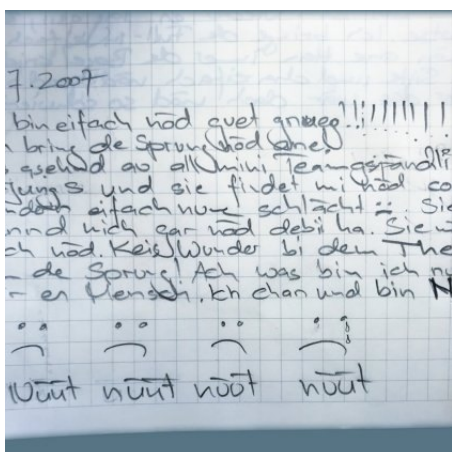 7.2007
bin eifach nöd guet gnueg!!!!!!!!!
bring de Sprung nöd ane
gsehnd au all mini Teamgspändli
Jungs und sie findet mi nöd co
eifach nume schlächt :: Sie
nich gar nöd debii ha. Sie
ch nöd. Keis Wunder bi dem The
de Sprung! Ach was bin ich nu
er Mensch. Ich chan und bin N
nüüt nüüt nüüt nüüt